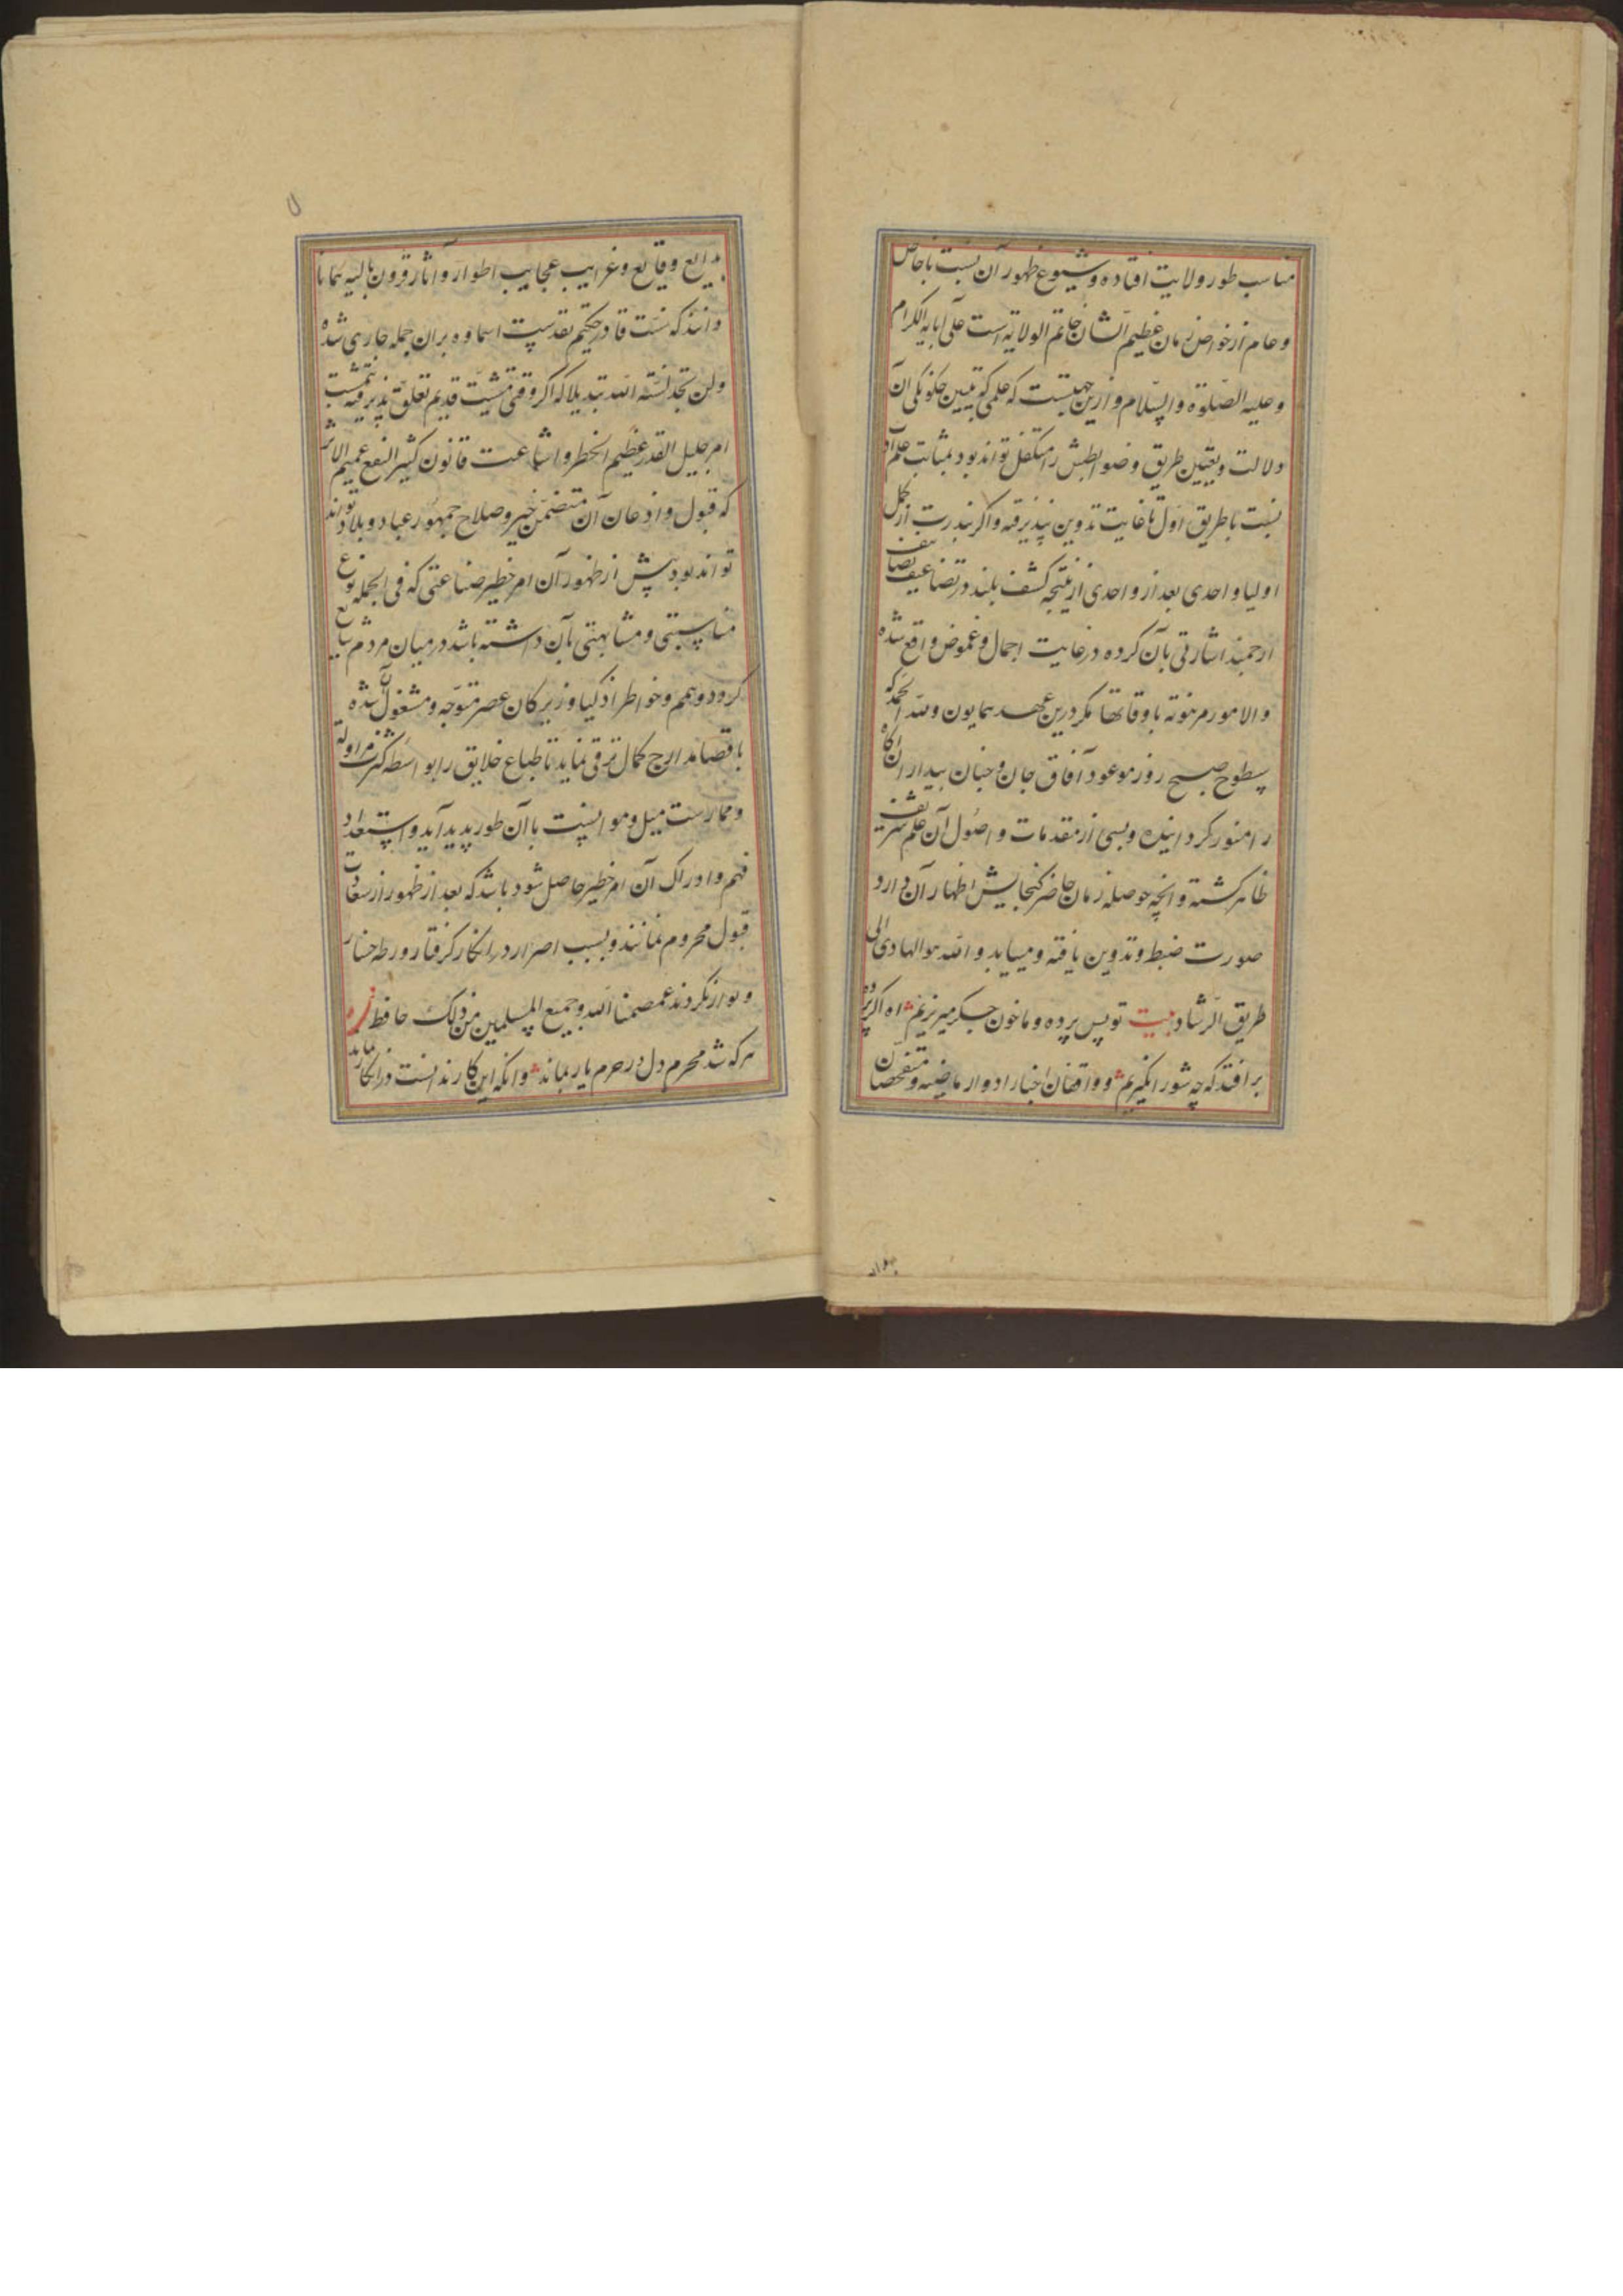 مناسب طور ولایت افتاده و شیوع ظهور آن نسبت با خاص
و عام از خواص زمان عظیم الشان خاتم الولایه است علی آبایه الکرام
و علیه الصلوة والسلام و ازین جهتست که علمی که تبیین چکونکی آن
دلالت و تعیین طریق و ضوابطش را متکفل تواند بود بمثابت علم
نسبت با طریق اول تا غایت تدوین نپذیرفته و اکر بندرت از کمل
اولیا واحدی بعد از واحدی از نتیجه کشف بلند در تضاعیف تصانیف
ارجمند اشارتی بآن کرده در غایت اجمال و غموض واقع شده
و الامور مرهونه باوقاتها مکر درین عهد همایون ولله الحمد که
سطوح صبح روز موعود آفاق جان و جنان بیداران آکاه
را منور کردانیده و بسی از مقدمات و اصول آن علم شریف
ظاهر کشته و انچه حوصله زمان حاضر کنجایش اظهار آن دارد
صورت ضبط و تدوین یافته و میباید و الله هو الهادی الی
طریق الرشاد بیت تو پس پرده و ما خون جکر میریزیم اه اکر پرده
برافتد که چه شور انکیزیم و واقفان اخبار ادوار ماضیه و متفحصان
بدایع وقایع و غرایب عجایب اطوار و آثار قرون بالیه همانا
دانند که سنت قادر حکیم تقدست اسماوه بران جمله جاری شده
ولن تجد لسنة الله تبدیلا که اکر وقتی مشیت قدیم تعلق پذیرفته بتمشیت
امر جلیل القدر عظیم الخطر و اشاعت قانون کثیر النفع عمیم الاثر
که قبول و اذعان آن متضمن خیر و صلاح جمهور عباد و بلاد تواند
تواند بود پیش از ظهور آن امر خطیر صناعتی که فی الجمله نوع
مناسبتی و مشابهتی بآن داشته باشد در میان مردم شایع
کردد و همم و خواطر اذکیا و زیرکان عصر متوجه و مشغول بآن شده
باقصا مدارج کمال ترقی نماید تا طباع خلایق را بواسطه کثرت مزاولة
و ممارست میل و موانست با آن طور پدید آید و استعداد
فهم و ادراک آن امر خطیر حاصل شود باشد که بعد از ظهور از سعادت
قبول محروم نمانند و بسبب اصرار در انکار کرفتار ورطه خسار
و بوار نکردند عصمنا الله و جمیع المسلمین من ذلک حافظ
هر که شد محرم دل در حرم یار بماند وانکه این کار ندانست در انکار بماند